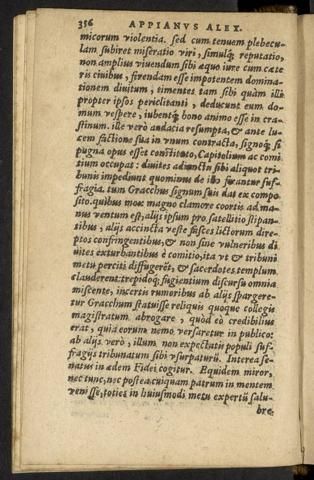 356 APPIANVS ALEX.
micorum violentia. sed cum tenuem plebecu-
lam subiret miseratio viri, simulq́; reputatio,
non amplius viuendum sibi aquo iure cum cæte
ris ciuibus, sed ferendam esse impotentem domina
tionem diuitum, timentes tam sibi quàm illi
propter ipsos periclitanti, deducunt eum do-
mum vespere, iubentq́; bono animo esse in cra-
stinum. ille verò audacia resumpta, & ante lu-
cem factione sua in vnum contracta, signoq́; si
pugna opus esset constituto, Capitolium ac comi
tium occupat: diuites adiunctis sibi aliquot tri-
bunis impediunt quominus de illo ferantur suf-
fragia. tum Gracchus signum suis dat ex compo
sito. quibus mox magno clamore coortis ad ma-
nus ventum est, alijs ipsum pro satellitio stipan-
tibus, alijs accincta veste fasces lictorum dire-
ptos confringentibus, & non sine vulneribus di
uites exturbantibus è comitio, ita vt & tribuni
metu perciti diffugerẽt, & sacerdotes templum
clauderent: trepidoq́; fugientium discursu omnia
miscente, incertis rumoribus ab alijs spargere-
tur Gracchum statuisse reliquis quoque collegis
magistratum abrogare, quòd eò credibilius
erat, quia eorum nemo versaretur in publico:
ab alijs verò, illum non expectatis populi suf-
fragijs tribunatum sibi vsurpaturũ. Interea se-
natus in ædem Fidei cogitur. Equidem miror,
nec tunc, nec postea cuiquam patrum in mentem
venisse, toties in huiusmodi metu expertũ salu-
bre